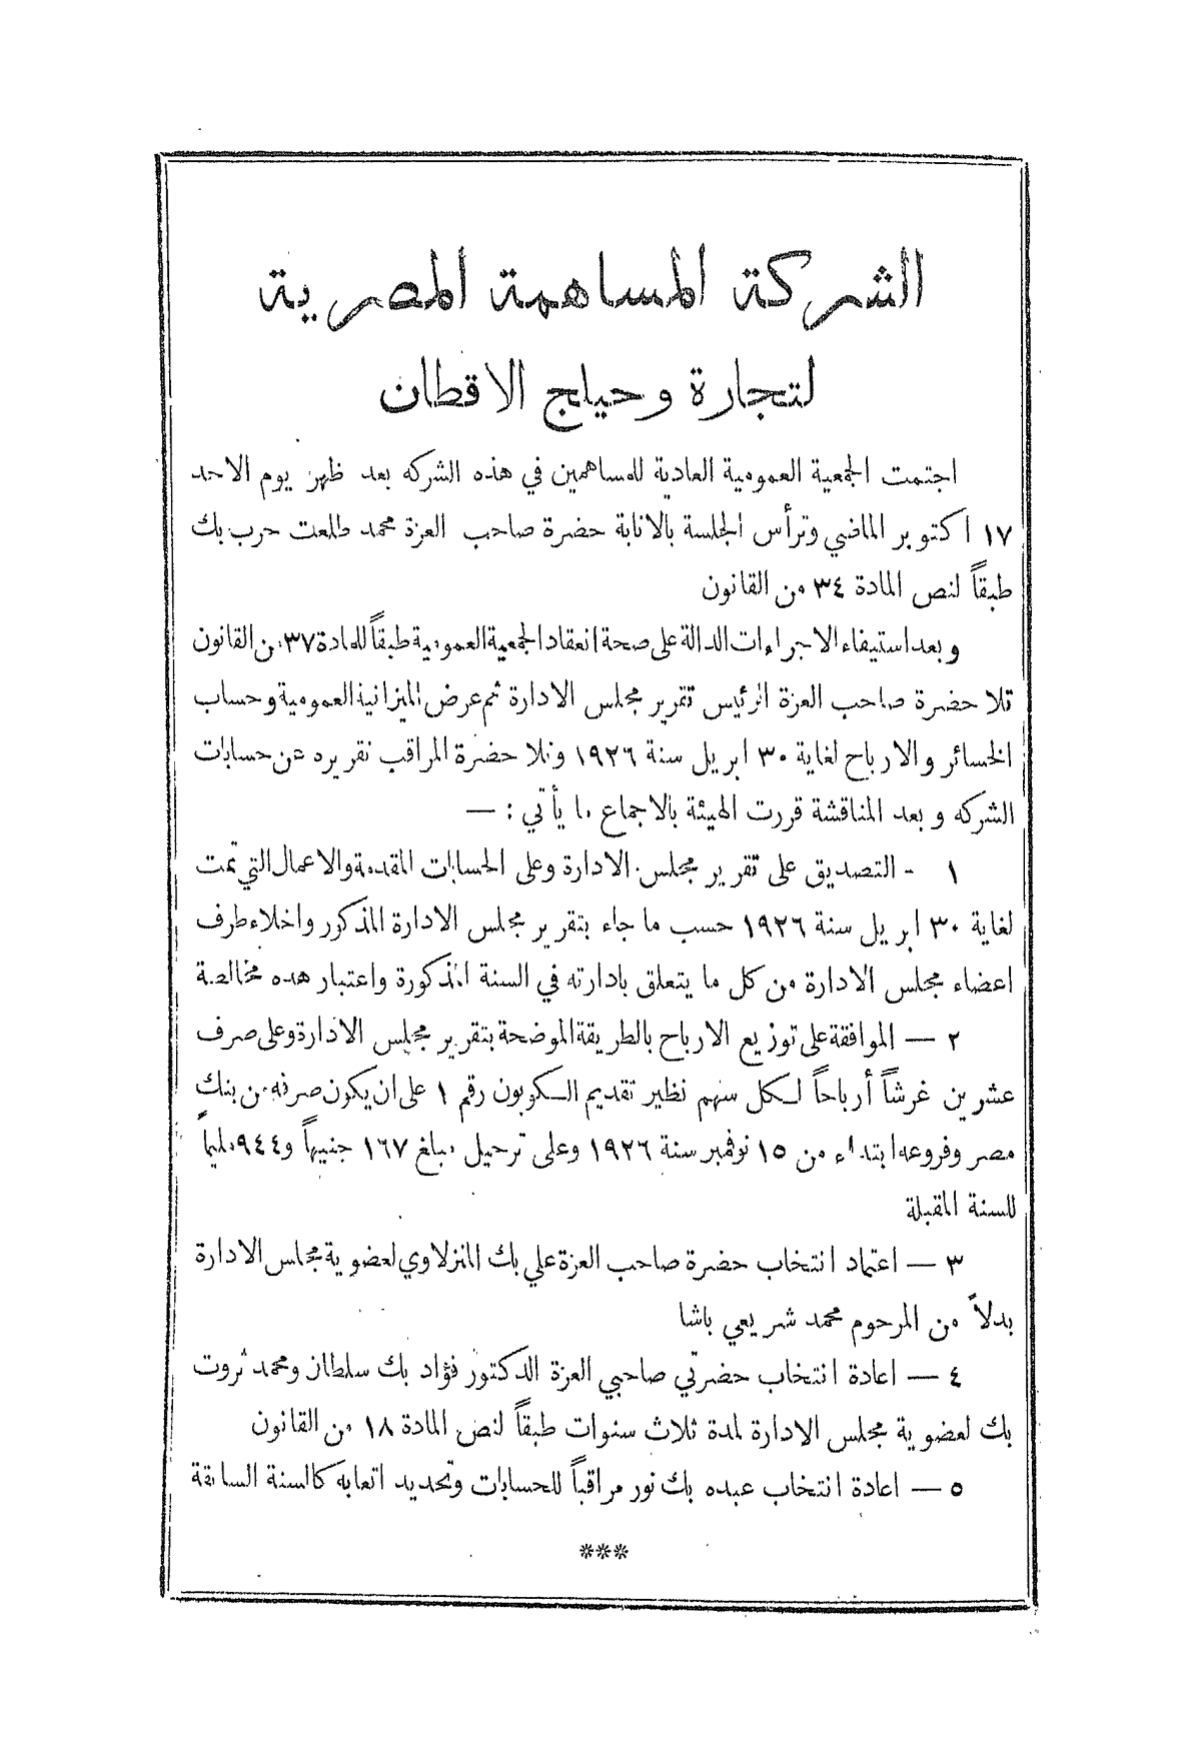 الشركة المساهمة المصرية
لتجارة وحيلج الاقطان
اجتمعت الجمعية العمومية العادية للمساهمين في هذه الشركه بعد ظهر يوم الاحد
١٧ اكتوبر الماضي وترأس الجلسة بالانابة حضرة صاحب العزة محمد طلعت حرب بك
طبقاً لنص المادة ٣٤ من القانون
وبعد استيفاء الاجراءات الدالة على صحة انعقاد الجمعية العمومية طبقاً للمادة ٣٧ من القانون
تلا حضرة صاحب العزة الرئيس تقرير مجلس الادارة ثم عرض الميزانية العمومية وحساب
الخسائر والارباح لغاية ٣٠ ابريل سنة ١٩٢٦ وتلا حضرة المراقب تقريره عن حسابات
الشركه وبعد المناقشة قررت الهيئة بالاجماع ما يأتي : —
١ - التصديق على تقرير مجلس الادارة وعلى الحسابات المقدمة والاعمال التي تمت
لغاية ٣٠ ابريل سنة ١٩٢٦ حسب ما جاء بتقرير مجلس الادارة المذكور واخلاء طرف
اعضاء مجلس الادارة من كل ما يتعلق بادارته في السنة المذكورة واعتبار هده مخالصة
٢ — الموافقة على توزيع الارباح بالطريقة الموضحة بتقرير مجلس الادارة وعلى صرف
عشرين غرشاً أرباحاً لكل سهم نظير تقديم الكوبون رقم ١ على ان يكون صرفه من بنك
مصر وفروعه ابتداء من ١٥ نوفمبر سنة ١٩٢٦ وعلى ترحيل مبلغ ١٦٧ جنيهاً و٩٤٤ مليماً
للسنة المقبلة
٣ — اعتماد انتخاب حضرة صاحب العزة علي بك المنزلاوي لعضوية مجلس الادارة
بدلاً من المرحوم محمد شريعي باشا
٤ — اعادة انتخاب حضرتي صاحبي العزة الدكتور فؤاد بك سلطان ومحمد ثروت
بك لعضوية مجلس الادارة لمدة ثلاث سنوات طبقاً لنص المادة ١٨ من القانون
٥ — اعادة انتخاب عبده بك نور مراقباً للحسابات وتحديد اتعابه كالسنة السابقة
***